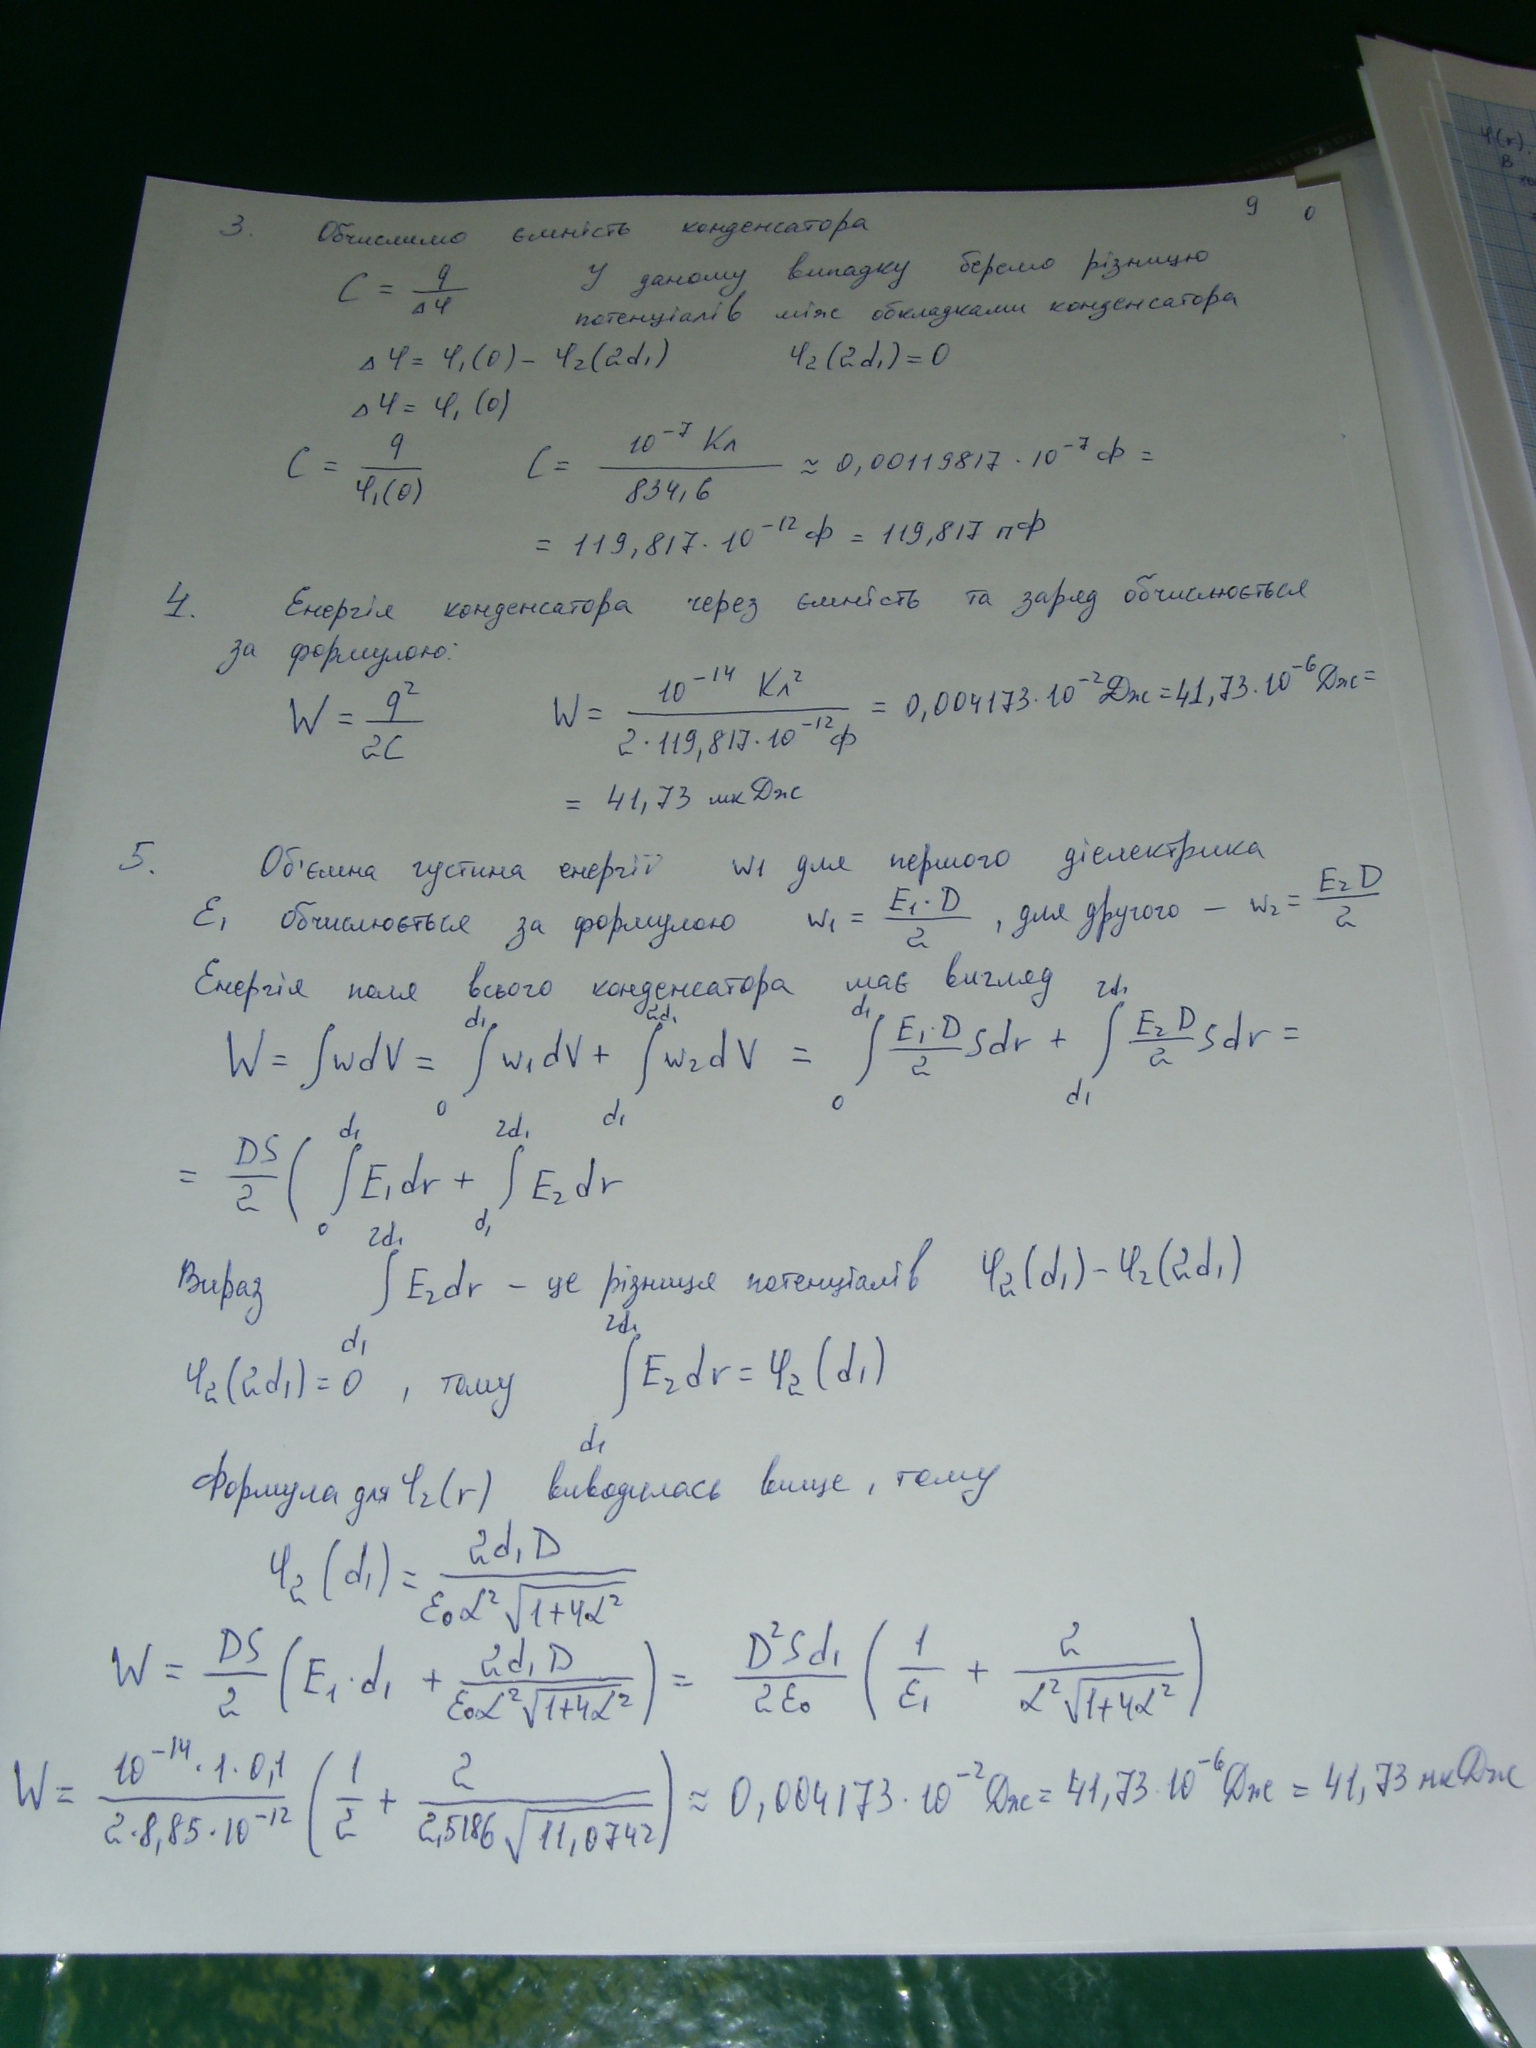 9 0
3. Обчислимо ємність конденсатора
C = q/Δφ У даному випадку беремо різницю
потенціалів між обкладками конденсатора
Δφ = φ₁(0) − φ₂(2d₁) φ₂(2d₁) = 0
Δφ = φ₁(0)
C = q/φ₁(0) C = 10⁻⁷ Кл/834,6 ≈ 0,00119817·10⁻⁷ Ф =
= 119,817·10⁻¹² Ф = 119,817 пФ
4. Енергія конденсатора через ємність та заряд обчислюється
за формулою:
W = q²/2C W = 10⁻¹⁴ Кл²/2·119,817·10⁻¹² Ф = 0,004173·10⁻² Дж = 41,73·10⁻⁶ Дж =
= 41,73 мкДж
5. Об'ємна густина енергії w₁ для першого діелектрика
ε₁ обчислюється за формулою w₁ = E₁·D/2, для другого − w₂ = E₂D/2
Енергія поля всього конденсатора має вигляд
W = ∫wdV = ∫₀^d₁ w₁dV + ∫_d₁^2d₁ w₂dV = ∫₀^d₁ E₁·D/2 Sdr + ∫_d₁^2d₁ E₂D/2 Sdr =
= DS/2 ( ∫₀^d₁ E₁dr + ∫_d₁^2d₁ E₂dr
Вираз ∫_d₁^2d₁ E₂dr − це різниця потенціалів φ₂(d₁) − φ₂(2d₁)
φ₂(2d₁) = 0, тому ∫_d₁^2d₁ E₂dr = φ₂(d₁)
Формула для φ₂(r) виводилась вище, тому
φ₂(d₁) = 2d₁D/ε₀α²√(1+4α²)
W = DS/2 (E₁·d₁ + 2d₁D/ε₀α²√(1+4α²)) = D²Sd₁/2ε₀ (1/ε₁ + 2/α²√(1+4α²))
W = 10⁻¹⁴·1·0,1/2·8,85·10⁻¹² (1/2 + 2/2,5186√11,0742) ≈ 0,004173·10⁻² Дж = 41,73·10⁻⁶ Дж = 41,73 мкДж
φ(r),
В